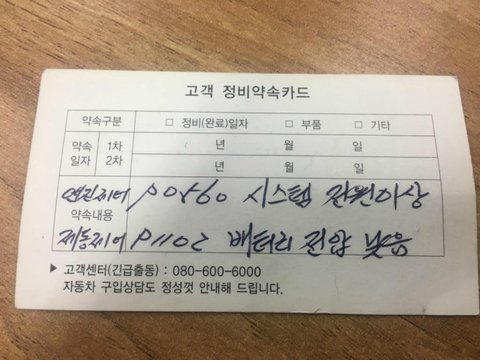 고객 정비약속카드
약속구분 □ 정비(완료)일자 □ 부품 □ 기타
약속 1차 년 월 일
일자 2차 년 월 일
엔진제어 P0560 시스템 전원이상
약속내용
제동제어 P1102 배터리 전압 낮음
▶ 고객센터(긴급출동) : 080-600-6000
자동차 구입상담도 정성껏 안내해 드립니다.